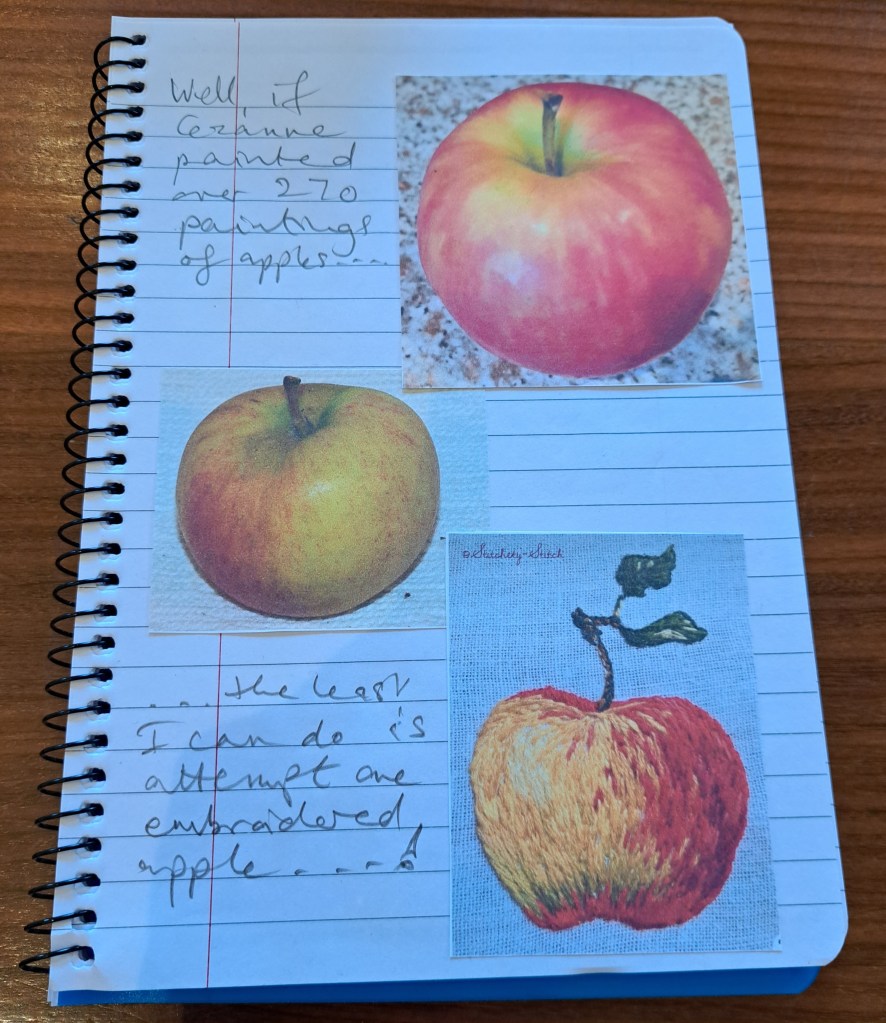 Well, if
Cezanne
painted
over 270
paintings
of apples....
@Stitchety-Stitch
... the least
I can do is
attempt one
embroidered
apple....!